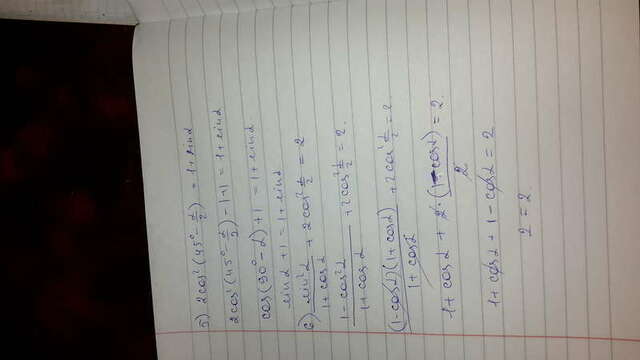 5) 2cos²(45° - α/2) = 1 + sinα
2cos²(45° - α/2) - 1 + 1 = 1 + sinα
cos(90° - α) + 1 = 1 + sinα
sinα + 1 = 1 + sinα
6) sin²α / 1 + cosα + 2cos² α/2 = 2
1 - cos²α / 1 + cosα + 2cos² α/2 = 2.
(1 - cosα)(1 + cosα) / 1 + cosα + 2cos² α/2 = 2.
1 + cosα + 2 · (1 - cosα) / 2 = 2.
1 + cosα + 1 - cosα = 2
2 = 2.